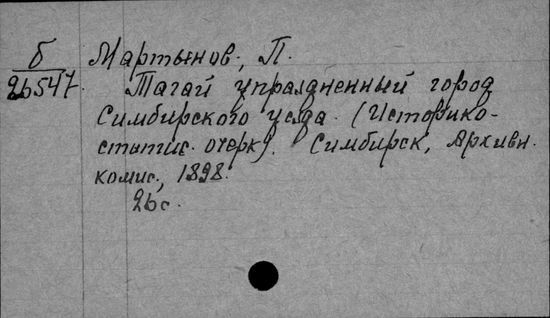 б Мартынов, П.
26547. Тагай упраздненный город
Симбирского уезда. (Историко-
статис. очерк). Симбирск, Архивн.
комис., 1898.
26 с.